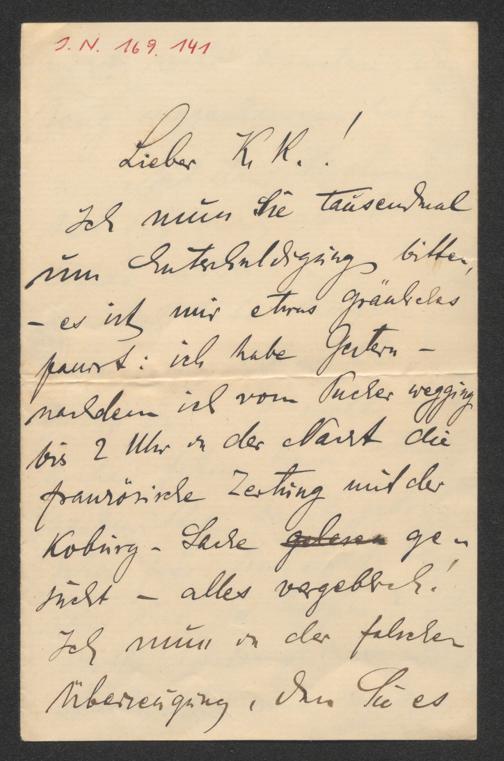 J. N. 169.141
Lieber K. K.!
Ich muss Sie tausendmal
um Entschuldigung bitten,
– es ist mir etwas gräuliches
passirt: ich habe Gestern –
nachdem ich vom Pucher wegging
bis 2 Uhr in der Nacht die
französische Zeitung mit der
Koburg – Sache gelesen ge-
sucht – alles vergeblich!
Ich muss in der falschen
Überzeugung, dass Sie es